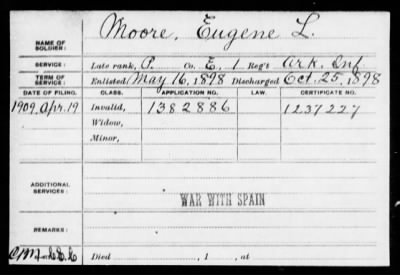 NAME OF SOLDIER: Moore, Eugene L.
SERVICE: Late rank, P. Co. E, 1 Reg't Ark. Inf.
TERM OF SERVICE: Enlisted May 16, 1898 Discharged Oct. 25, 1898
DATE OF FILING. CLASS. APPLICATION NO. LAW. CERTIFICATE NO.
1909, Apr. 19 Invalid, 1382886 1237227
Widow,
Minor,
ADDITIONAL SERVICES: WAR WITH SPAIN
REMARKS:
Died , 1 , at